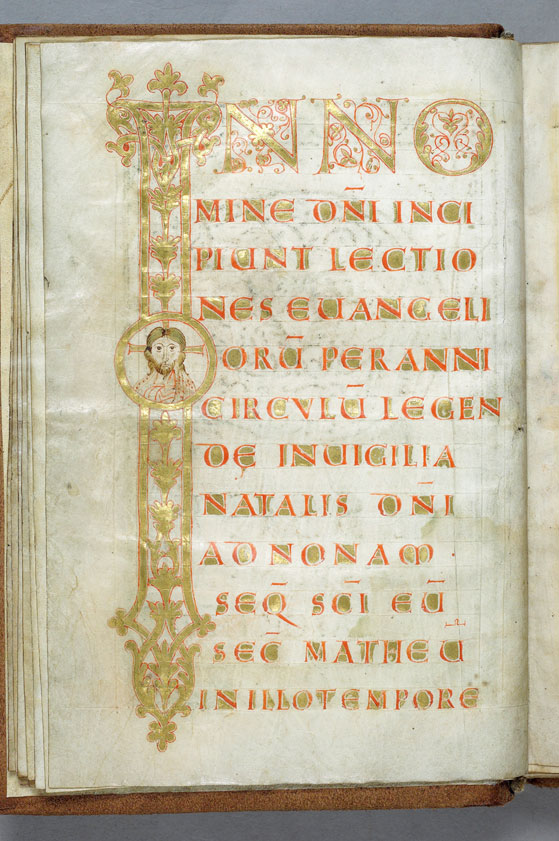 INNO
MINE DN̄I INCI
PIUNT LECTIO
NES EUANGELI
ORŪ PER ANNI
CIRCVLŪ LEGEN
DĘ IN UIGILIA
NATALIS DN̄I
AD NONAM
SEQ̄ SC̄I EŪ
SEC̄ MATHEU
IN ILLO TEMPORE